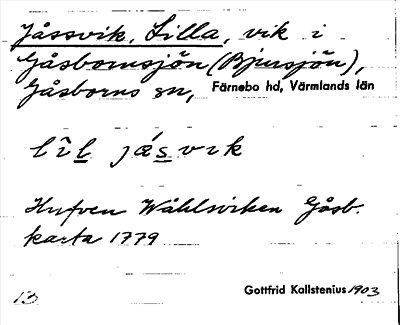 Jåssvik, Lilla, vik i
Gåsbornssjön (Bjursjön),
Gåsborns sn, Färnebo hd, Värmlands län
lîl jǽsvik
Hufven Wåhlsviken Gåsb.
karta 1779
13 Gottfrid Kallstenius 1903